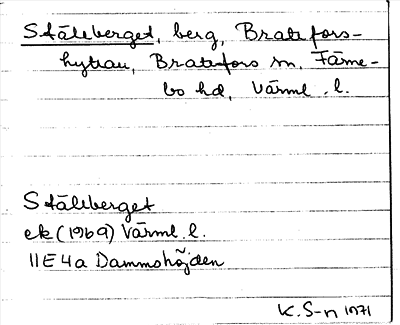 Ståleberget, berg, Bratefors-
hyttan, Bratefors sn, Färne-
bo hd, Värml. l.
Ståleberget
ek (1969) Värml. l.
11E4a Dammshöjden
K. S-n 1971